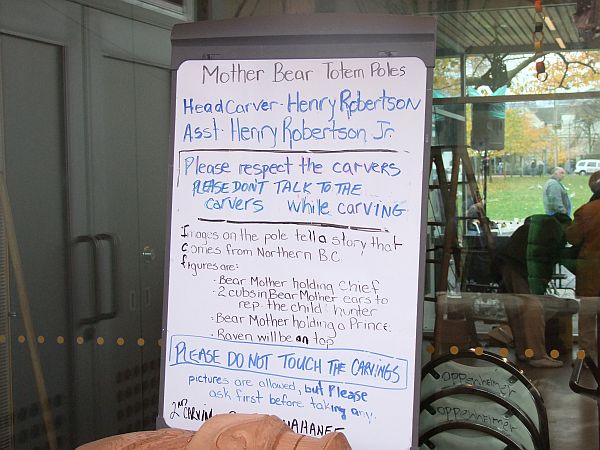 Mother Bear Totem Poles
Head Carver - Henry Robertson
Asst - Henry Robertson, Jr.
Please respect the carvers
PLEASE DON'T TALK TO THE
carvers while carving
Images on the pole tell a story that
comes from Northern B.C
figures are:
- Bear Mother holding Chief
- 2 cubs in Bear Mother ears to
rep. the child hunter
- Bear Mother holding a Prince
- Raven will be on top
PLEASE DO NOT TOUCH THE CARVINGS
pictures are allowed, but Please
ask first before taking any.
2nd CARVIN
oppenheimer
oppenheimer